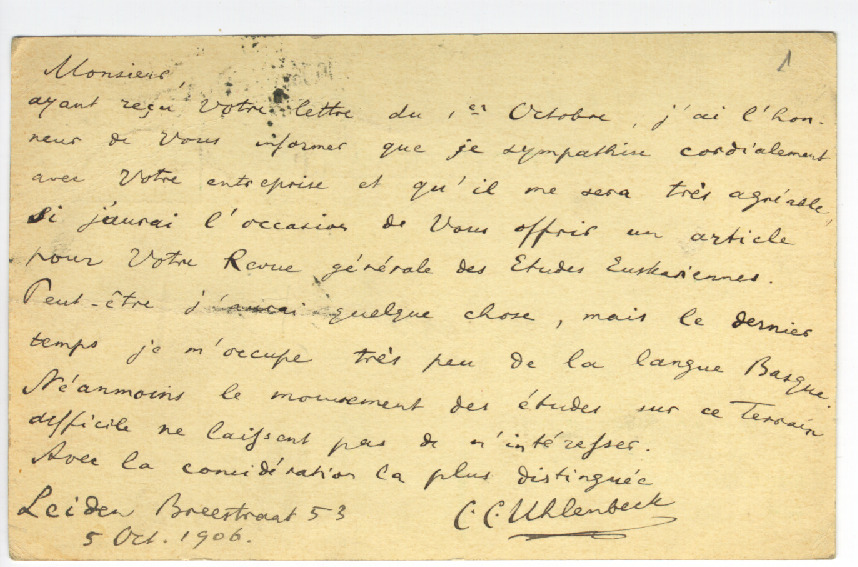 1
Monsieur,
ayant reçu Votre lettre du 1er Octobre, j'ai l'hon-
neur de Vous informer que je sympathise cordialement
avec Votre entreprise et qu'il me sera très agréable,
si j'aurai l'occasion de Vous offrir un article
pour Votre Revue générale des Etudes Euskariennes.
Peut-être j'aurai quelque chose, mais le dernier
temps je m'occupe très peu de la langue Basque.
Néanmoins le mouvement des études sur ce Terrain
difficile ne laissent pas de m'intéresser.
Avec la considération la plus distinguée
Leiden Breestraat 53 C.C. Uhlenbeck
5 Oct. 1906.